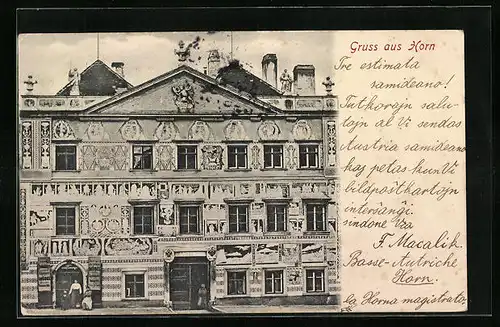 Gruss aus Horn
Tre estimata
samideano!
Tutkorajn salu-
tojn al Vi sendas
Austria samideano
kaj petas kun Vi
bildpoŝtkartojn
interŝanĝi.
sindone Via
F. Macalik.
Basse-Autriche
Horn.
la Horna magistrato,